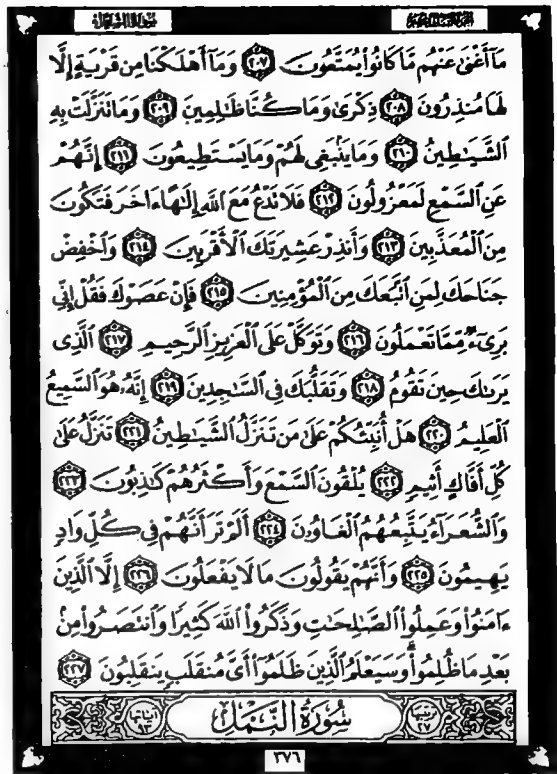 مَا أَغْنَىٰ عَنْهُم مَّا كَانُوا يُمَتَّعُونَ ٢٠٧ وَمَا أَهْلَكْنَا مِن قَرْيَةٍ إِلَّا
لَهَا مُنذِرُونَ ٢٠٨ ذِكْرَىٰ وَمَا كُنَّا ظَالِمِينَ ٢٠٩ وَمَا تَنَزَّلَتْ بِهِ
الشَّيَاطِينُ ٢١٠ وَمَا يَنبَغِي لَهُمْ وَمَا يَسْتَطِيعُونَ ٢١١ إِنَّهُمْ
عَنِ السَّمْعِ لَمَعْزُولُونَ ٢١٢ فَلَا تَدْعُ مَعَ اللَّهِ إِلَٰهًا آخَرَ فَتَكُونَ
مِنَ الْمُعَذَّبِينَ ٢١٣ وَأَنذِرْ عَشِيرَتَكَ الْأَقْرَبِينَ ٢١٤ وَاخْفِضْ
جَنَاحَكَ لِمَنِ اتَّبَعَكَ مِنَ الْمُؤْمِنِينَ ٢١٥ فَإِنْ عَصَوْكَ فَقُلْ إِنِّي
بَرِيءٌ مِّمَّا تَعْمَلُونَ ٢١٦ وَتَوَكَّلْ عَلَى الْعَزِيزِ الرَّحِيمِ ٢١٧ الَّذِي
يَرَاكَ حِينَ تَقُومُ ٢١٨ وَتَقَلُّبَكَ فِي السَّاجِدِينَ ٢١٩ إِنَّهُ هُوَ السَّمِيعُ
الْعَلِيمُ ٢٢٠ هَلْ أُنَبِّئُكُمْ عَلَىٰ مَن تَنَزَّلُ الشَّيَاطِينُ ٢٢١ تَنَزَّلُ عَلَىٰ
كُلِّ أَفَّاكٍ أَثِيمٍ ٢٢٢ يُلْقُونَ السَّمْعَ وَأَكْثَرُهُمْ كَاذِبُونَ ٢٢٣
وَالشُّعَرَاءُ يَتَّبِعُهُمُ الْغَاوُونَ ٢٢٤ أَلَمْ تَرَ أَنَّهُمْ فِي كُلِّ وَادٍ
يَهِيمُونَ ٢٢٥ وَأَنَّهُمْ يَقُولُونَ مَا لَا يَفْعَلُونَ ٢٢٦ إِلَّا الَّذِينَ
آمَنُوا وَعَمِلُوا الصَّالِحَاتِ وَذَكَرُوا اللَّهَ كَثِيرًا وَانتَصَرُوا مِن
بَعْدِ مَا ظُلِمُوا وَسَيَعْلَمُ الَّذِينَ ظَلَمُوا أَيَّ مُنقَلَبٍ يَنقَلِبُونَ ٢٢٧
ترتيبها ٢٧ سُورَةُ النَّمْلِ آياتها ٩٣
٣٧٦